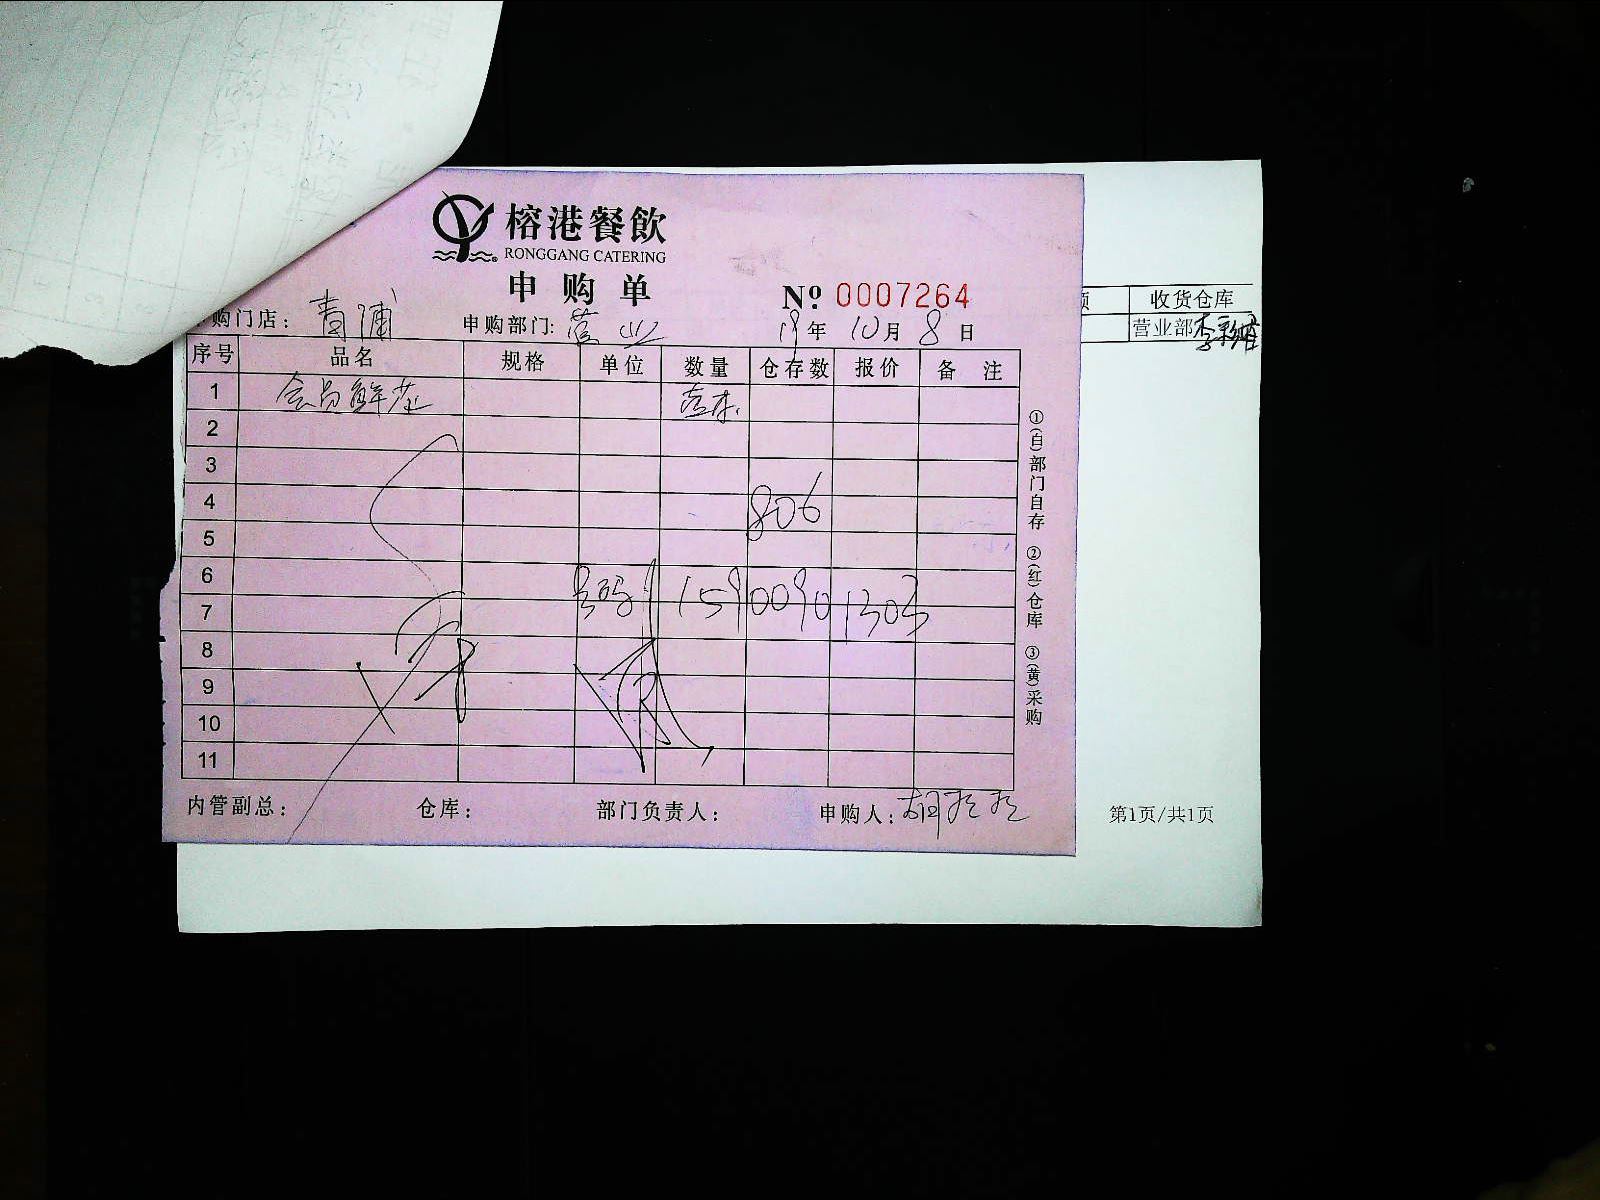 榕港餐飲
RONGGANG CATERING
申购单
No 0007264
购门店：青浦 申购部门：营业 19年10月8日
序号 品名 规格 单位 数量 仓存数 报价 备注
1 会员鲜花 壹束
2
3
4 806
5
6
7 号码 15900901303
8
9
10
11
①(白)部门自存 ②(红)仓库 ③(黄)采购
内管副总： 仓库： 部门负责人： 申购人：胡
收货仓库
营业部李
第1页/共1页